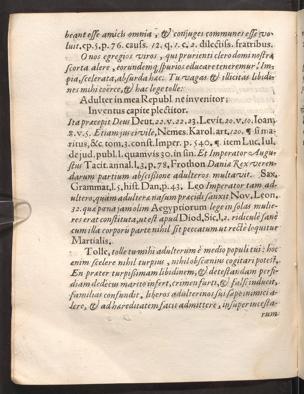 beant esse amicis omnia, & coniuges communes esse vo-
luit. cp. 5. p. 76. causs. 12. q. 1. c. 2. dilectiss. fratribus.
O nos egregios viros, qui prurienti clero domi nostræ
scorta alere, eorundemq́ spurios educare teneremur! Im-
pia, scelerata, absurda hæc. Tu vagas & illicitas libidi-
nes mihi coërce, & hac lege tolle:
Adulter in mea Republ. ne invenitor;
Inventus capite plectitor.
Ita præcepit Deus Deut. 22. v. 22. 23. Levit. 20. v. 10. Ioan.
8. v. 5. Etiam jus civile, Nemes. Karol. art. 120. ¶ si ma-
ritus, &c. tom. 3. const. Imper. p. 540. ¶ item Luc. lul.
de jud. publ. l. quamvis 30. in fin. Et Imperator Augu-
stus Tacit. annal. l. 3. p. 78. Frothon Daniæ Rex veren-
darum partium abscisione adulteros multavit. Sax.
Grammat. l. 5. hist. Dan. p. 43. Leo Imperator tam ad-
ultero, quàm adulteræ nasum præcidi sanxit Nov. Leon.
32. quæ pœna jam olim Aegyptiorum lege in solas mulie-
res erat constituta, ut est apud Diod. Sic. l. 2. ridiculè sanè
cum illa corporis parte nihil sit peccatum ut rectè loquitur
Martialis.
Tolle, tolle tu mihi adulterum è medio populi tui: hoc
enim scelere nihil turpius, nihil obscœnius cogitari potest.
En præter turpissimam libidinem, & detestandam perfi-
diam dedecus marito infert, crimen furti, & falsi inducit,
familias confundit, liberos adulterinos sui sæpe inimici a-
lere, & ad hæreditatem facit admittere, insuper incesta-
rum